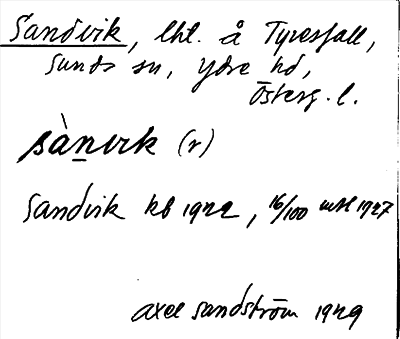 Sandvik, lht. å Tyresfall,
Sunds sn, Ydre hd,
Österg. l.
sànvik (r)
Sandvik kb 1922, 16/100 mtl 1927
axel sandström 1929